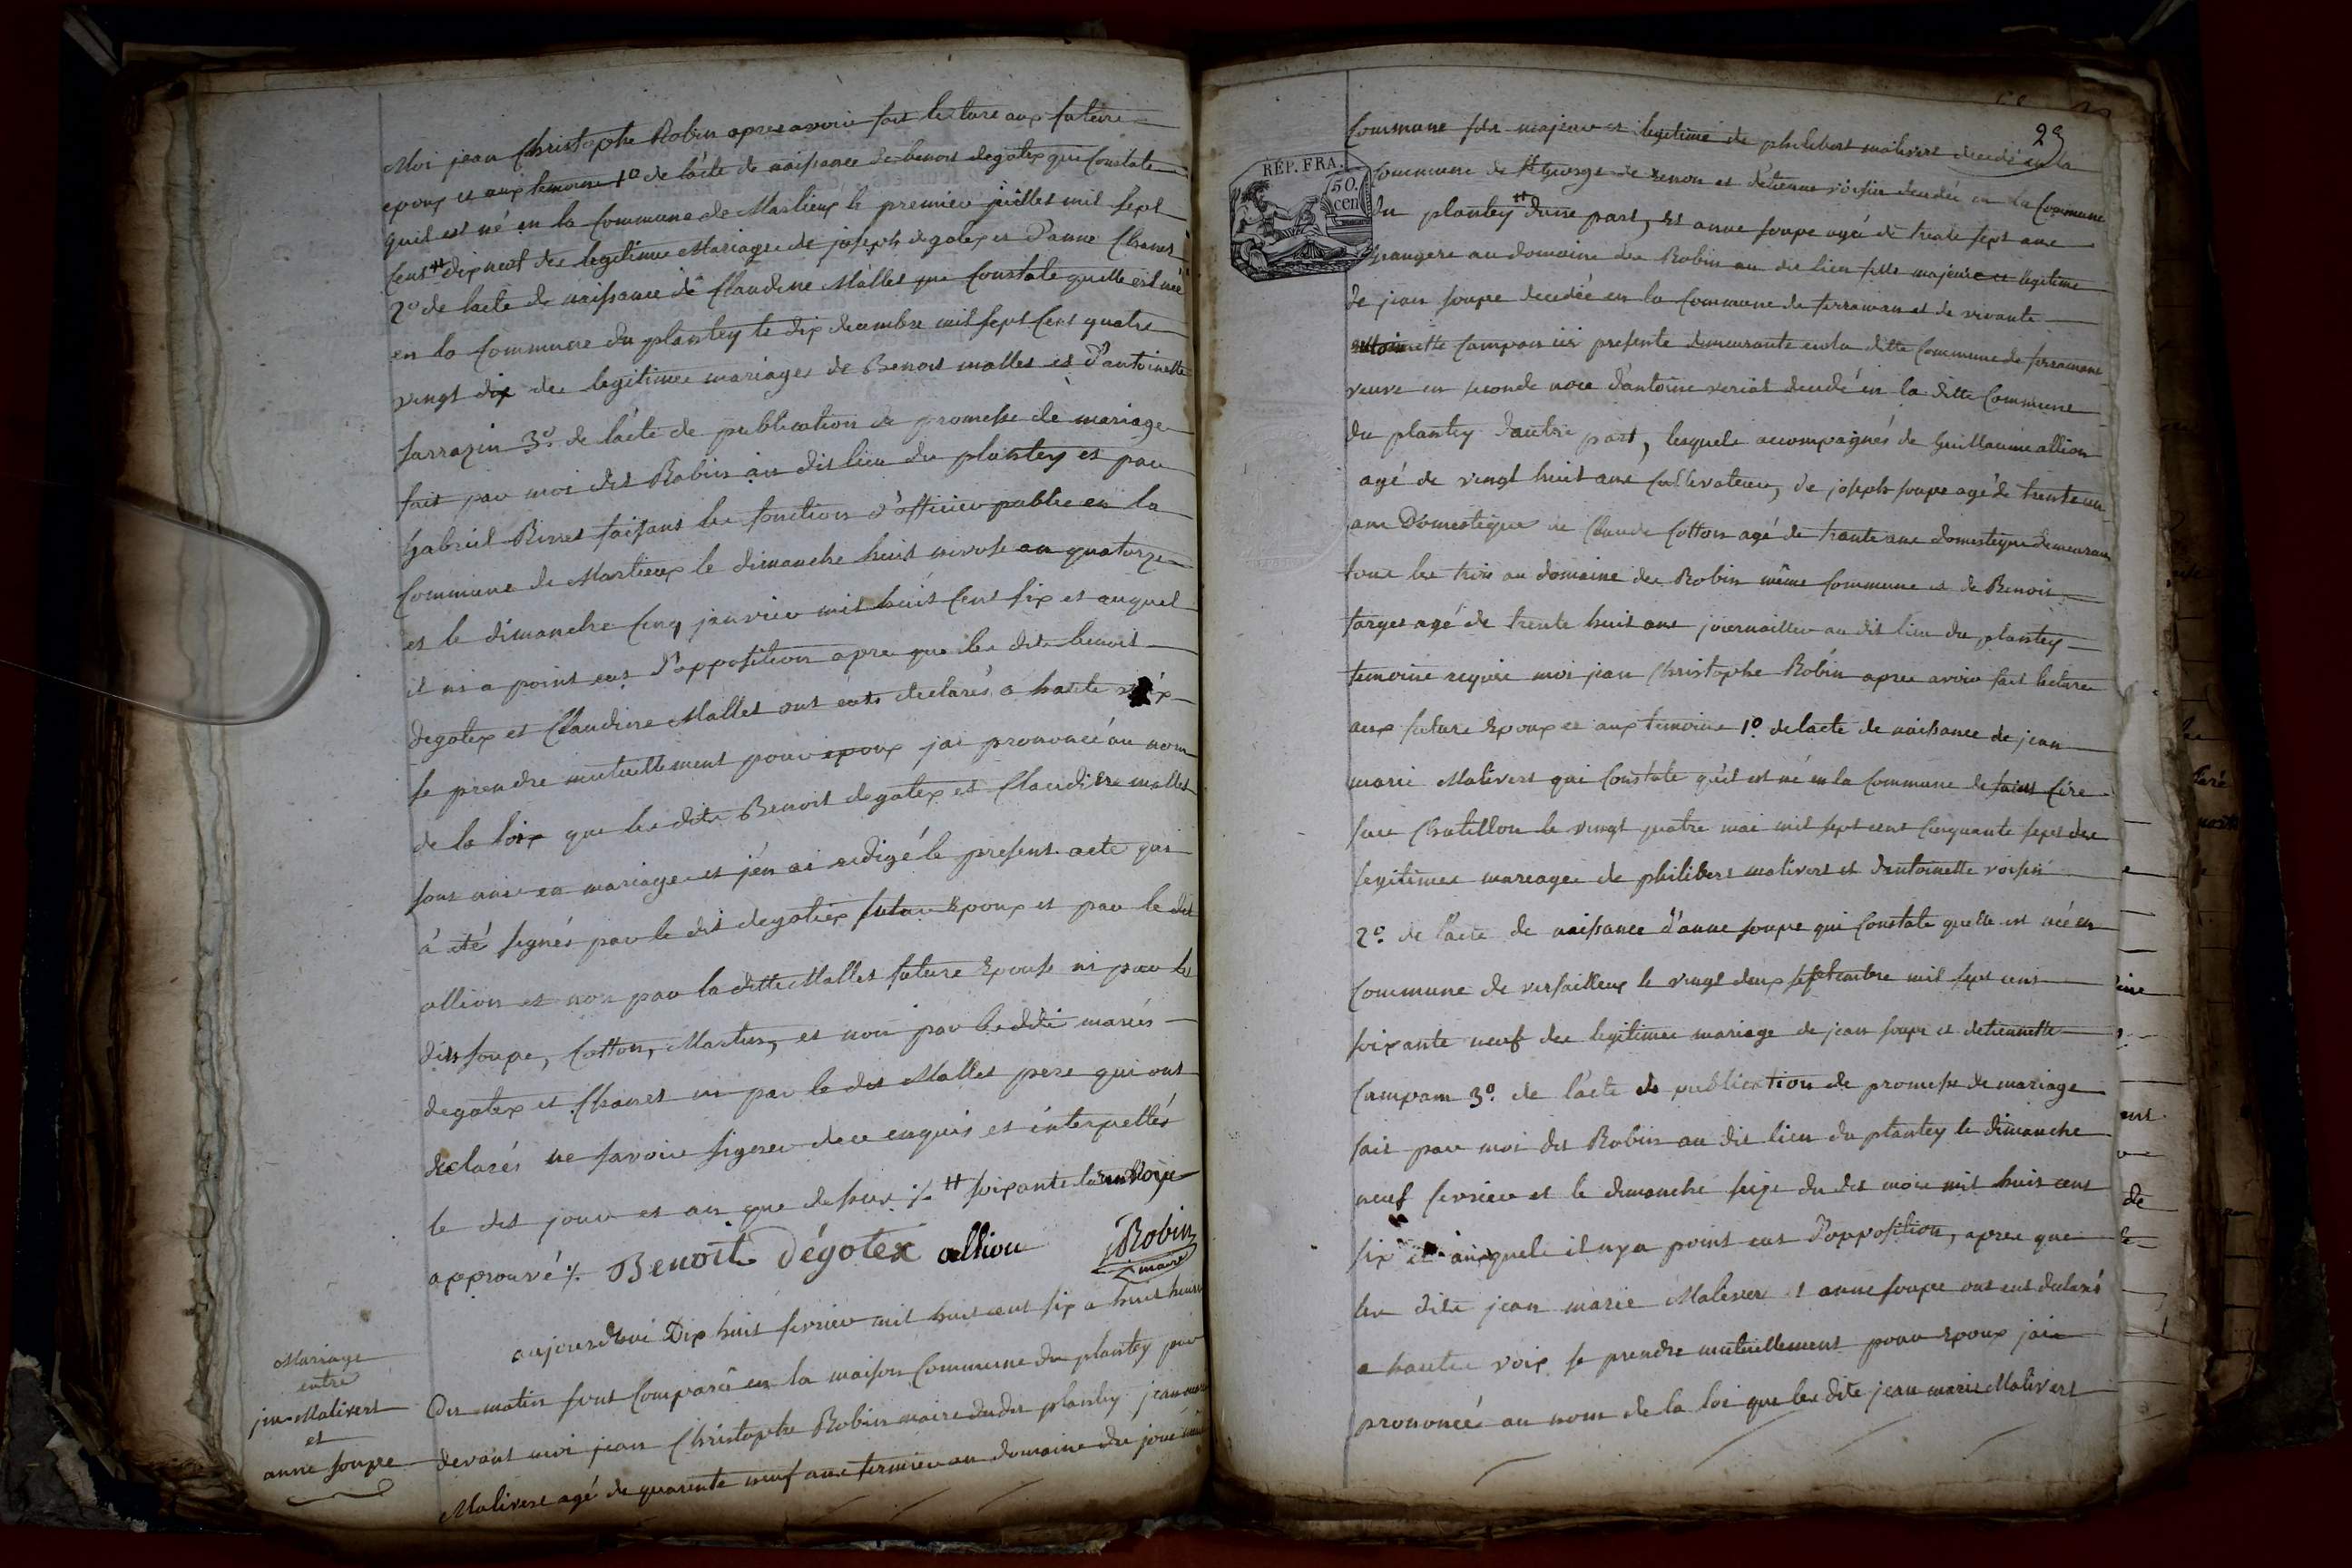 Moi jean Christophe Robin apres avoir fait lecture aux future
epoux et aux temoins 1º de l'acte de naissance de benoit degotex qui Constate
quil est né en la Commune de Marlieux le premier juillet mil sept
Cent # dix neuf des legitimes Mariages de joseph degotex et d'anne Chanet
2º de lacte de naissance de Claudine Mallet qui Constate quelle est née
en la Commune du plantey le dix decembre mil sept Cent quatre
vingt dix des legitimes mariages de Benoit mallet et d'antoinette
sarrazin 3º de l'acte de publication de promesse de mariage
fait par moi dit Robin au dit lieu du plantey et par
Gabriel faisant les fonctions d'officier public en la
Commune de Marlieux le dimanche huit nivose an quatorze
et le dimanche cinq janvier mil huit Cent six et auquel
il ni a point eus d'opposition apres que les dits benoit
degotex et Claudine Mallet ont euts declarés a haute
se prendre mutuellement pour epoux jai prononcé au nom
de la loix que les dits Benoit degotex et Claudine mallet
sont unis en mariage et j'en ai redigé le present acte qui
à été signés par le dit degotex futur Epoux et par le dit
allion et non par la ditte Mallet future Epouse ni par les
dits soupe, Cotton, Martin, et non par les dits mariés
degotex et Chanet ni par le dit Mallet pere qui ont
declarés ne savoir signer de ce enquis et interpellés
le dit jour et an que dessus ·/. # soixante
approuvé ·/. Benoit Dégotex allion Robin
maire
aujourdhui Dix huit fevrier mil huit cent six a huit heures
Mariage
entre
jm Malivert
et
anne soupe
Du matin sont Comparû en la maison Commune du plantey par
devant moi jean Christophe Robin maire dudit plantey jean marie
Malivert agé de quarente neuf ans fermier au domaine du joué même
23
RÉP. FRA.
50.
cen
Commune fils majeur et legitime de philibert malivert decedé en la
Commune de St George de renon et d'etienne voisin decedée en la Commune
du plantey # d'une part, Et anne soupe agée de trente sept ans
grangere au domaine des Robin au dit lieu fille majeure et legitime
de jean soupe decedée en la Commune de et de vivante
presente demeurante en la ditte Commune de
veuve en seconde noce d'antoine veriat decedé en la ditte Commune
du plantey d'autre part, lesquels accompagnés de Guillaume allion
agé de vingt huit ans Cultivateur, de joseph soupe agé de trente un
ans Domestique de Claude Cotton agé de trante ans domestique demeurant
tous les trois au domaine des Robin même Commune et de Benoit
targes agé de trente huit ans journaillier au dit lieu du plantey
temoins requis moi jean Christophe Robin apres avoir fait lecture
aux future Epoux et aux temoins 1º. de lacte de naissance de jean
marie Malivert qui Constate quil est né en la Commune de saint Cire
sur Chatillon le vingt quatre mai mil sept cent Cinquante sept des
legitimes mareages de philibert malivert et d'antoinette voisin
2º. de l'acte de naissance d'anne soupe qui Constate quelle est née en
Commune de versailleux le vingt deux septembre mil sept cent
soixante neuf des legitimes mariage de jean soupe et detiennette
Campam 3º. de l'acte de publication de promesse de mariage
fait par moi dit Robin au dit lieu du plantey le dimanche
neuf fevrier et le dimanche seize du dit mois mil huit cent
six et auxquels il ny a point eus d'opposition, apres que
les dits jean marie Malivert et anne soupe ont eut declarés
a hautes voix se prendre mutuellement pour Epoux jai
prononcés au nom de la loi que les dits jean marie Malivert